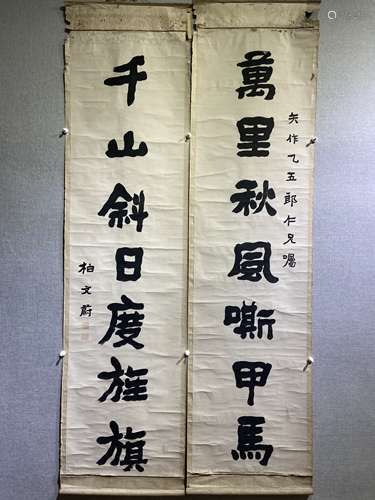 萬里秋風嘶甲馬
矢作乙五郎仁兄囑
千山斜日度旌旗
柏文蔚